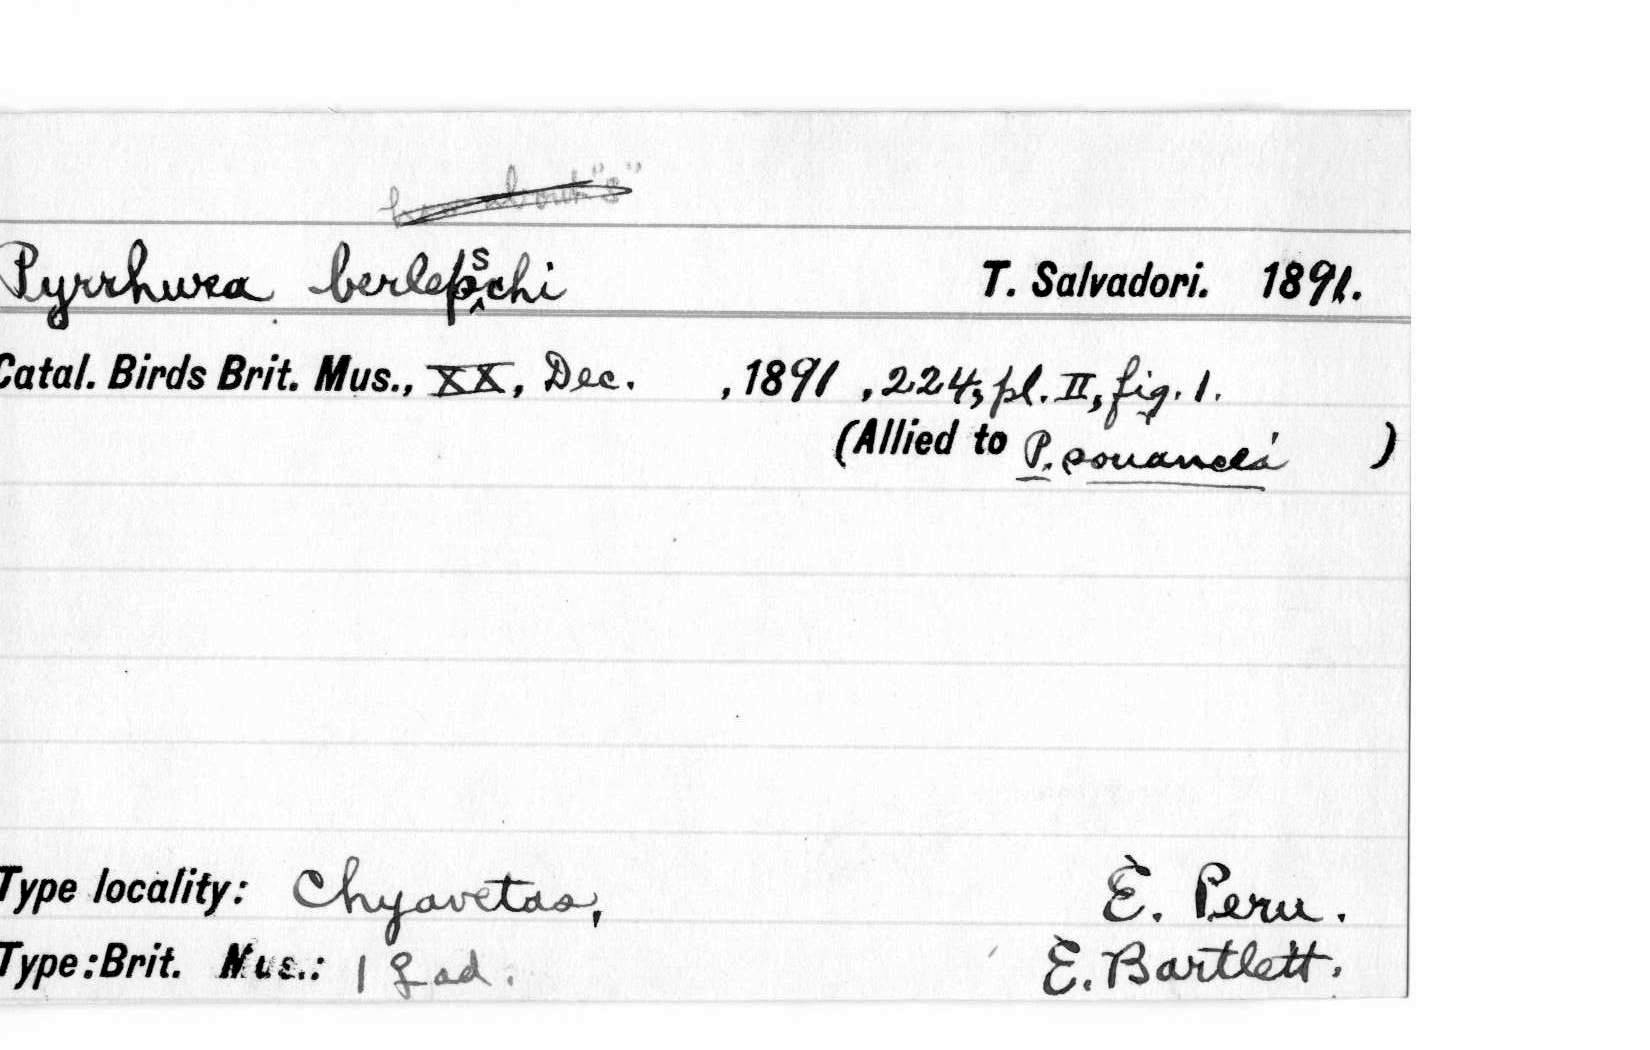 how about "s"
Pyrrhura berlepschi T. Salvadori. 1891.
Catal. Birds Brit. Mus., XX, Dec. , 1891 , 224, pl. II, fig. 1.
(Allied to P. souancei )
Type locality: Chyavetas, E. Peru.
Type: Brit. Mus.: 1 ♀ ad. E. Bartlett.